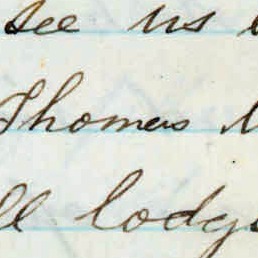 see us
Thomas
lodge